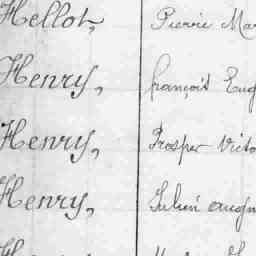 Hellot, Pierre Mar
Henry, françois Eug
Henry, Prosper Victo
Henry, Julien augu